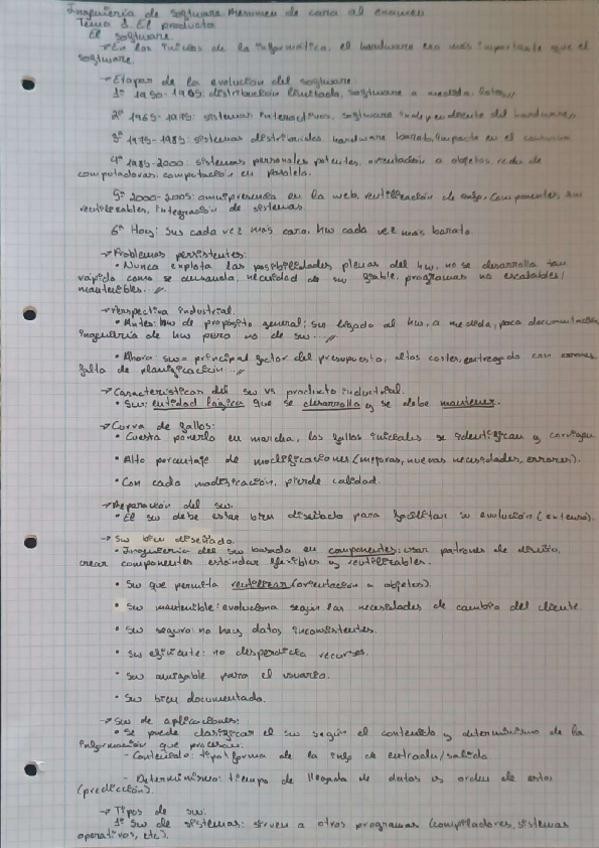 Ingeniería de Software. Resumen de cara al examen
Tema 1. El producto
El software.
→ En los inicios de la informática, el hardware era más importante que el
software.
→ Etapas de la evolución del software
1ª 1950-1965: distribución limitada, software a medida, lotes,,
2ª 1965-1975: sistemas interactivos, software independiente del hardware,,
3ª 1975-1985: sistemas distribuidos, hardware barato, impacto en el consumo
4ª 1985-2000: sistemas personales potentes, orientación a objetos, redes de
computadoras, computación en paralelo.
5ª 2000-2005: omnipresencia en la web, reutilización de componentes, sw
reutilizables, integración de sistemas.
6ª Hoy: sw cada vez más caro, hw cada vez más barato.
→ Problemas persistentes:
• Nunca explota las posibilidades plenas del hw, no se desarrolla tan
rápido como se demanda, necesidad de sw fiable, programas no escalables/
mantenibles...
→ Perspectiva industrial.
• Antes: hw de propósito general; sw ligado al hw, a medida, poca documentación,
ingeniería de hw pero no de sw...
• Ahora: sw = principal factor del presupuesto, altos costes, entregado con errores,
falta de planificación...
→ Características del sw vs producto industrial.
• Sw: entidad lógica que se desarrolla y se debe mantener.
→ Curva de fallos:
• Cuesta ponerlo en marcha, los fallos iniciales se identifican y corrigen
• Alto porcentaje de modificaciones (mejoras, nuevas necesidades, errores).
• Con cada modificación, pierde calidad.
→ Reparación del sw.
• El sw debe estar bien diseñado para facilitar su evolución
→ Sw bien diseñado.
• Ingeniería del sw basada en componentes: usar patrones de diseño,
crear componentes estándar flexibles y reutilizables.
• Sw que permita reutilizar (orientación a objetos).
• Sw mantenible: evoluciona según las necesidades de cambio del cliente
• Sw seguro: no hay datos inconsistentes.
• Sw eficiente: no desperdicia recursos.
• Sw amigable para el usuario.
• Sw bien documentado.
→ Sw de aplicaciones:
• Se puede clasificar el sw según el contenido y determinismo de la
información que procesan.
- Contenido: tipo/forma de la info de entrada/salida
- Determinismo: tiempo de llegada de datos u orden de estos
(predicción).
→ Tipos de sw:
1º Sw de sistemas: sirven a otros programas (compiladores, sistemas
operativos, etc).